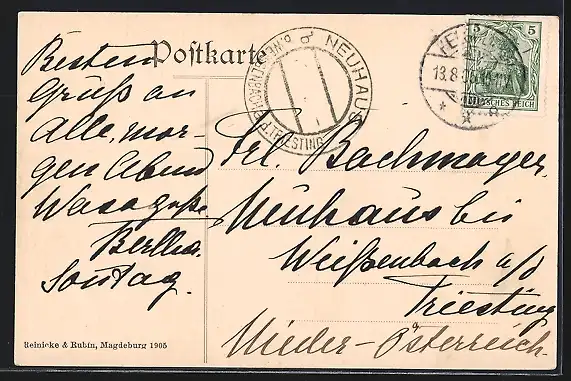 Postkarte
Besten
Gruß an
Alle, mor-
gen Abend
Bertha.
Sontag.
Reinicke & Rubin, Magdeburg 1905
NEUHAUS
5 5
DEUTSCHES REICH
13.8.06
Frl. Bachmayer,
Neuhaus bei
Weißenbach a/d
Triesting
Nieder-Österreich.